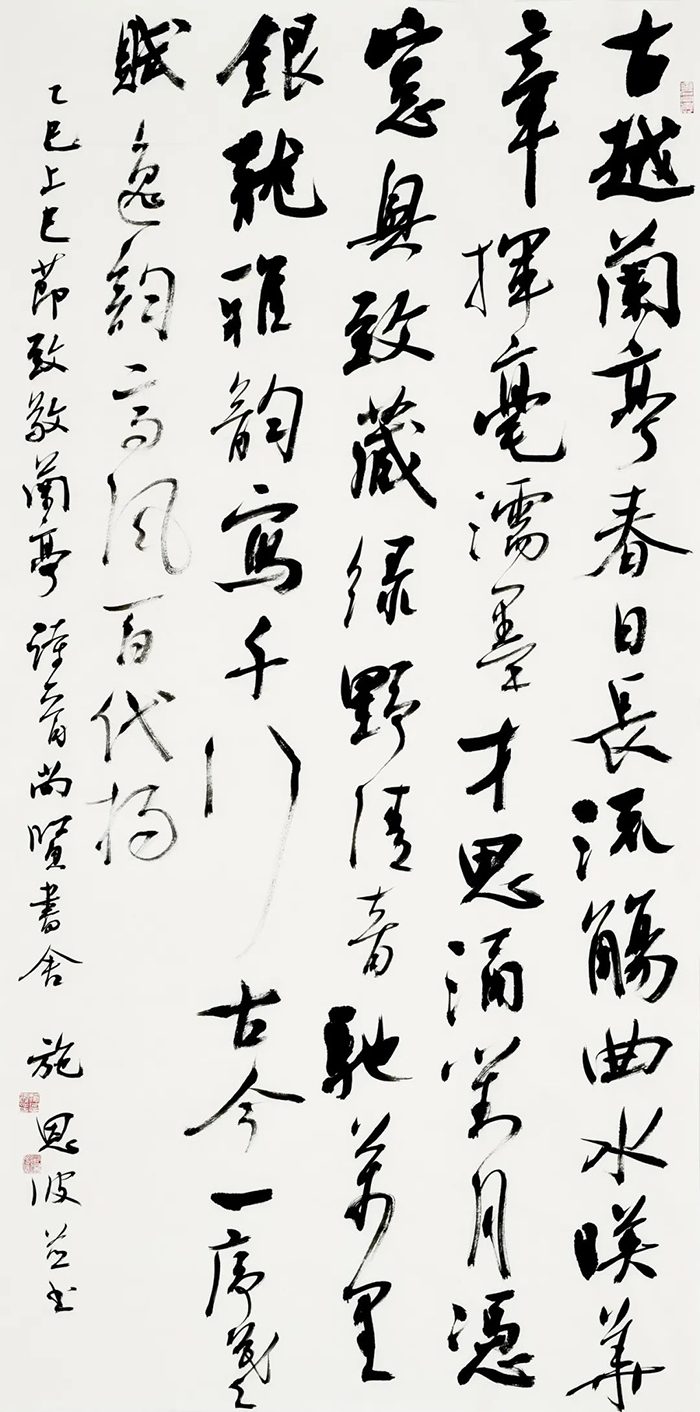 古越蘭亭春日長流觴曲水暎華
章揮毫濡墨才思涌對月憑
窓興致藏绿野清音馳萬里
銀雅韻寫千行古今一序羲之
賦逸韵高風百代揚
乙巳上巳節致敬蘭亭 詩音尚賢書舍 施恩波並书